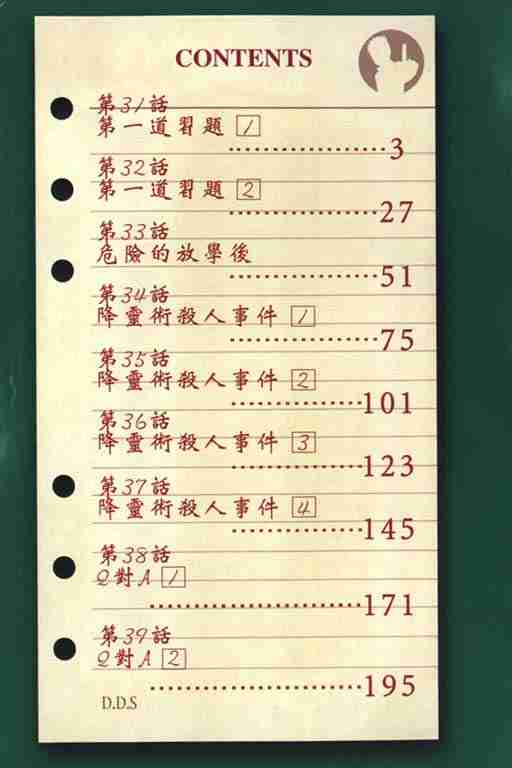 CONTENTS
第31話
第一道習題 1
··················3
第32話
第一道習題 2
·················27
第33話
危險的放學後
·················51
第34話
降靈術殺人事件 1
·················75
第35話
降靈術殺人事件 2
···············101
第36話
降靈術殺人事件 3
···············123
第37話
降靈術殺人事件 4
···············145
第38話
Q對A 1
························171
第39話
Q對A 2
························195
D.D.S